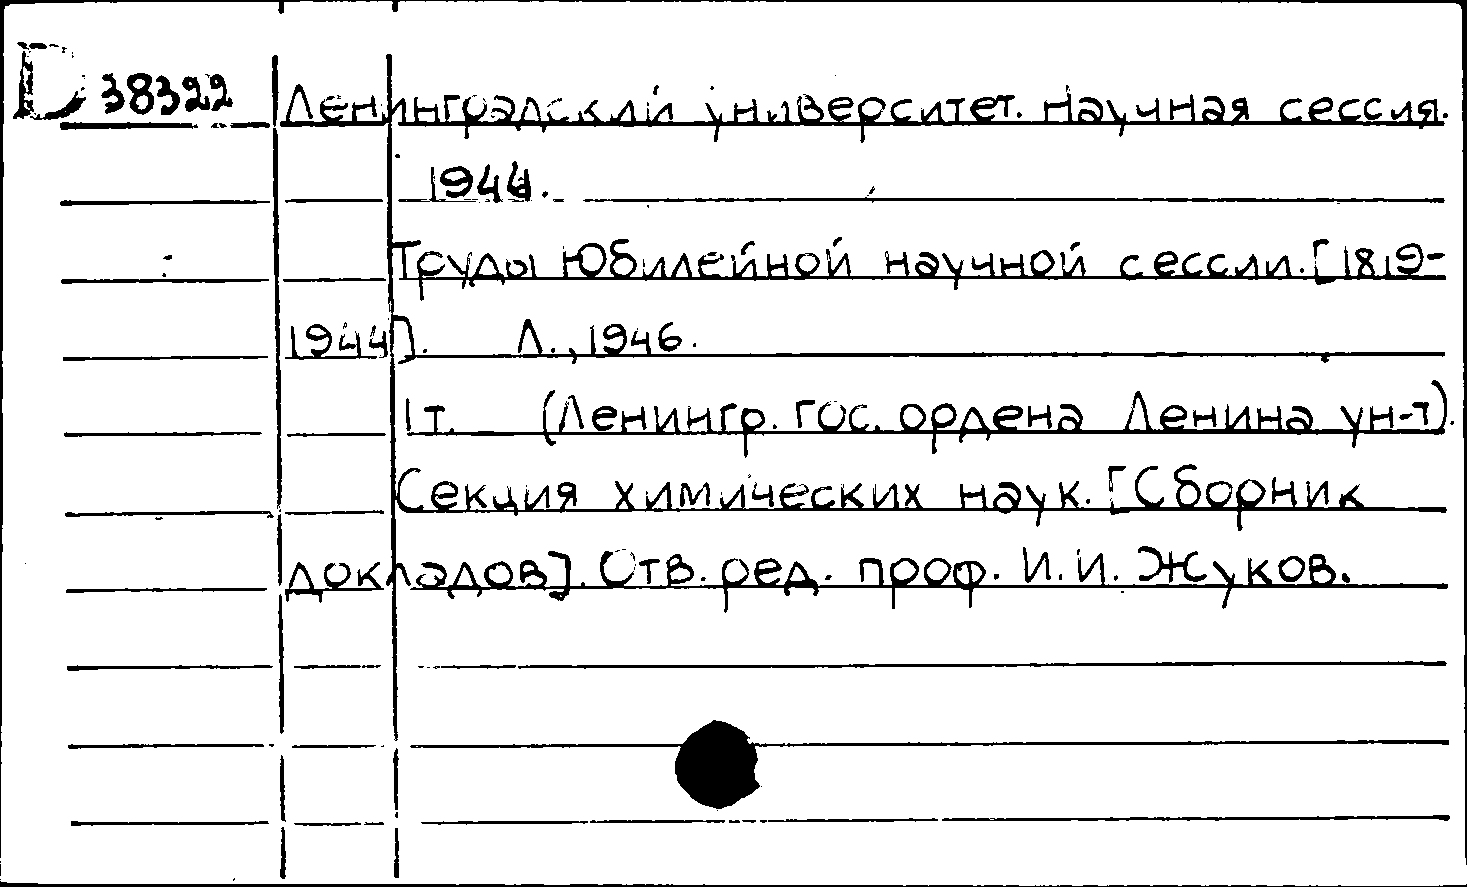 D 38322 Ленинградский университет. Научная сессия.
1944.
Труды Юбилейной научной сессии. [1819-
1944]. Л., 1946.
1 т. (Ленингр. гос. ордена Ленина ун-т).
Секция химических наук. [Сборник
докладов]. Отв. ред. проф. И. И. Жуков.